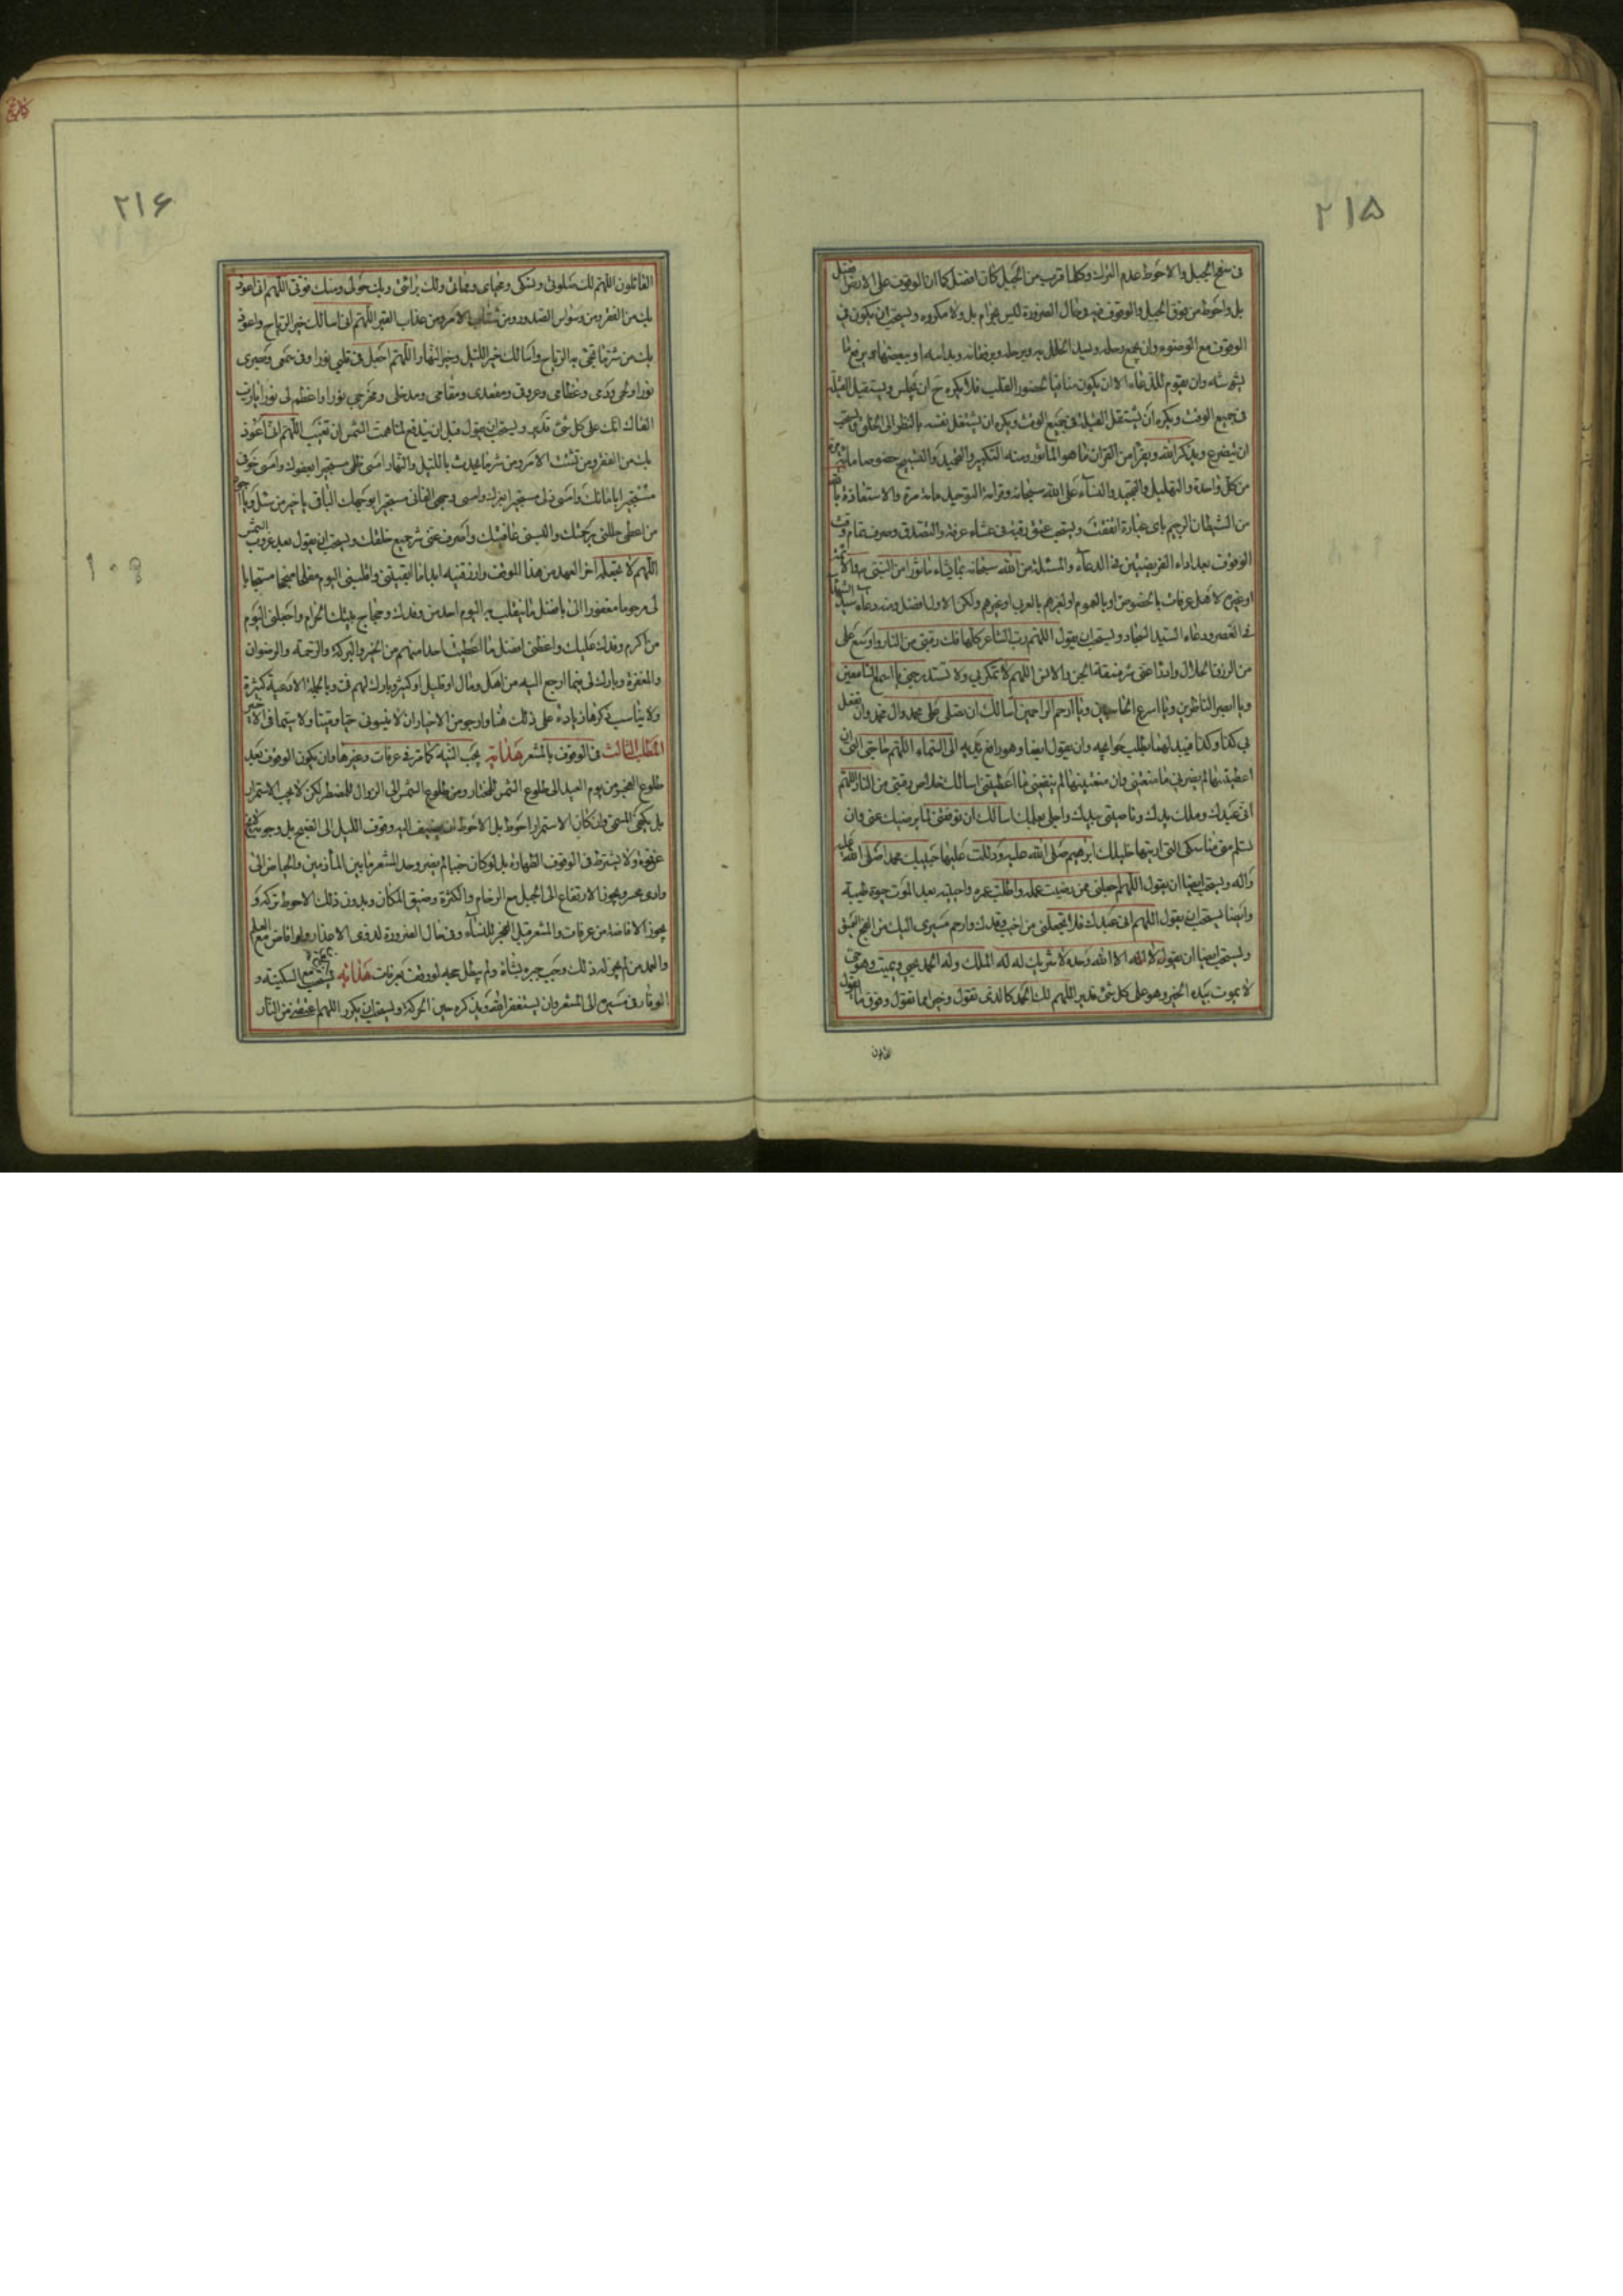 ٢١۵
فى سفح الجبل والاحوط عدم الترك وكلما قرب من الجبل كان افضل كما ان الوقوف على الارض افضل
بل واحوط من فوق الجبل والوقوف فيه فى حال الضرورة ليس بحرام بل ولا مكروه ويستحب ان يكون فى
الوقوف مع الوضوء وان يجمع رحله ويسد الخلل به وبرحله
وان يقوم للدعاء الا ان يكون منافيا لحضور القلب فلا يكره ح ان يجلس ويستقبل القبلة
فى جميع الوقت ويكره ان يستقبل القبلة فى جميع الوقت ويكره ان يشتغل نفسه بالنظر الى الخلق ويستحب
ان يتضرع ويذكر الله ويقرأ من القران ما هو المأثور ومنه التكبير والتحميد والتسبيح خصوصا مائة مرة
من كل واحدة والتهليل والتمجيد والثناء على الله سبحانه وقراءة التوحيد مائة مرة والاستعاذة بالله
من الشيطان الرجيم باى عبارة اتفقت ويستحب عتق رقبة فى عشاء عرفة والتصدق وصرف تمام وقت
الوقوف بعد اداء الفريضتين فى الدعاء والمسئلة من الله سبحانه بما يشاء مأثورا من النبى ص والائمة
او غيره لاهل عرفات بالخصوص او بالعموم او لغيرهم بالعربى او غيرهم ولكن الاول افضل ومنه دعاء سيد الشهداء
ودعاء السيد السجاد ويستحب ان يقول اللهم رب المشاعر كلها فك رقبتى من النار واوسع على
من الرزق الحلال وادرأ عنى شر فسقة الجن والانس اللهم لا تمكر بي ولا تستدرجنى يا اسمع السامعين
ويا ابصر الناظرين ويا اسرع الحاسبين ويا ارحم الراحمين اسالك ان تصلى على محمد وال محمد وان تفعل
بي كذا وكذا فيبدلهما بطلب حوائجه وان يقول ايضا وهو رافع يديه الى السماء اللهم حاجتى التى ان
اعطيتنيها لم يضرنى ما منعتنى وان منعتنيها لم ينفعنى ما اعطيتنى اسالك خلاص رقبتى من النار اللهم
انى عبدك وملك يدك وناصيتى بيدك واجلى بعلمك اسالك ان توفقنى لما يرضيك عنى وان
تسلم منى مناسكى التى اريتها خليلك ابرهيم صلى الله عليه ودللت عليها حبيبك محمدا صلى الله عليه
واله ويستحب ايضا ان يقول اللهم اجعلنى ممن رضيت عمله واطلت عمره واحييته بعد الموت حيوة طيبة
وايضا يستحب ان يقول اللهم انى عبدك فلا تجعلنى من اخيب وفدك وارحم مسيرى اليك من الفج العميق
ويستحب ايضا ان يقول لا اله الا الله وحده لا شريك له له الملك وله الحمد يحيي ويميت وهو حى
لا يموت بيده الخير وهو على كل شئ قدير اللهم لك الحمد كالذى نقول وخيرا مما نقول وفوق ما يقول
القائلون
٢١۶
القائلون اللهم لك صلوتى ونسكى ومحياى ومماتى ولك براءتى وبك حولى ومنك قوتى اللهم انى اعوذ
بك من الفقر ومن وسواس الصدور ومن شتات الامر ومن عذاب القبر اللهم انى اسالك خير الرياح واعوذ
بك من شر ما تجئ به الرياح واسالك خير الليل وخير النهار اللهم اجعل فى قلبي نورا وفى سمعى وبصرى
نورا ولحمى ودمى وعظامى وعروقى ومقعدى ومقامى ومدخلى ومخرجى نورا واعظم لى نورا يا رب
القاك انك على كل شئ قدير ويستحب ان يقول قبل ان يندفع لما همت الشمس ان تغيب اللهم انى اعوذ
بك من الفقر ومن تشتت الامر ومن شر ما يحدث بالليل والنهار امسى ظلمى مستجيرا بعفوك وامسى خوفى
مستجيرا بامانك وامسى ذلى مستجيرا بعزك وامسى وجهى الفانى مستجيرا بوجهك الباقى يا خير من سئل ويا اجود
من اعطى جللنى برحمتك والبسنى عافيتك واصرف عنى شر جميع خلقك ويستحب ان يقول بعد غروب الشمس
اللهم لا تجعله اخر العهد من هذا الموقف وارزقنيه ابدا ما ابقيتنى واقلبنى اليوم مفلحا منجحا مستجابا
لى مرحوما مغفورا لى بافضل ما ينقلب به اليوم احد من وفدك وحجاج بيتك الحرام واجعلنى اليوم
من اكرم وفدك عليك واعطنى افضل ما اعطيت احدا منهم من الخير والبركة والرحمة والرضوان
والمغفرة وبارك لى فيما ارجع اليه من اهل ومال او قليل او كثير وبارك لهم فى وبالجملة الادعية كثيرة
ولا يناسب ذكرها زيادة على ذلك هنا وارجو من الاخيار ان لا ينسونى حيا وميتا ولا سيما فى
المطلب الثالث فى الوقوف بالمشعر هداية يجب النية كما مر فى عرفات وغيرها وان يكون الوقوف بعد
طلوع الفجر من يوم العيد الى طلوع الشمس للمختار ومن طلوع الشمس الى الزوال للمضطر لكن لا يجب الاستمرار
بل يكفى المسمى وان كان الاستمرار احوط بل الاحوط ان يضيف اليه وقوف الليل الى الصبح بل وجوبه لا يخ
عن قوة ولا يشترط فى الوقوف الطهارة بل لو كان جنبا لم يضر وحد المشعر ما بين المأزمين والحياض الى
وادى محسر ويجوز الارتفاع الى الجبل مع الزحام والكثرة وضيق المكان وبدون ذلك الاحوط تركه و
يجوز الافاضة من عرفات والمشعر قبل الفجر للنساء وفى حال الضرورة لذوى الاعذار ولو افاض مع العلم
والعمد من لم يجز له ذلك وجب جبره بشاة ولم يبطل حجه لو وقف بعرفات هداية يستحب مع السكينة و
الوقار فى مسيره الى المشعر وان يستغفر الله ويذكره حين الحركة ويستحب ان يكرر اللهم اعتقنى من النار